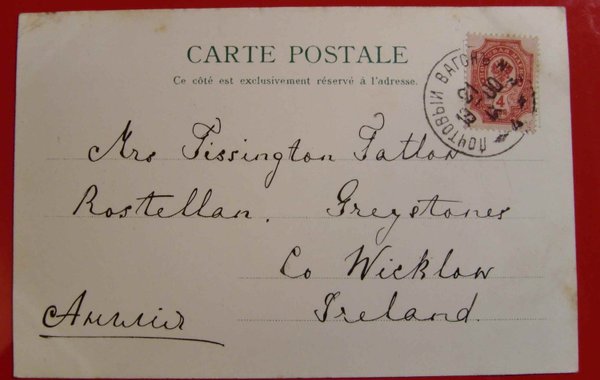 CARTE POSTALE
Ce côté est exclusivement réservé à l'adresse.
ПОЧТОВЫЙ ВАГОНЪ
4
Mrs Tissington Tatlow
Rostellan, Greystones
Co Wicklow
Ireland.
Англія